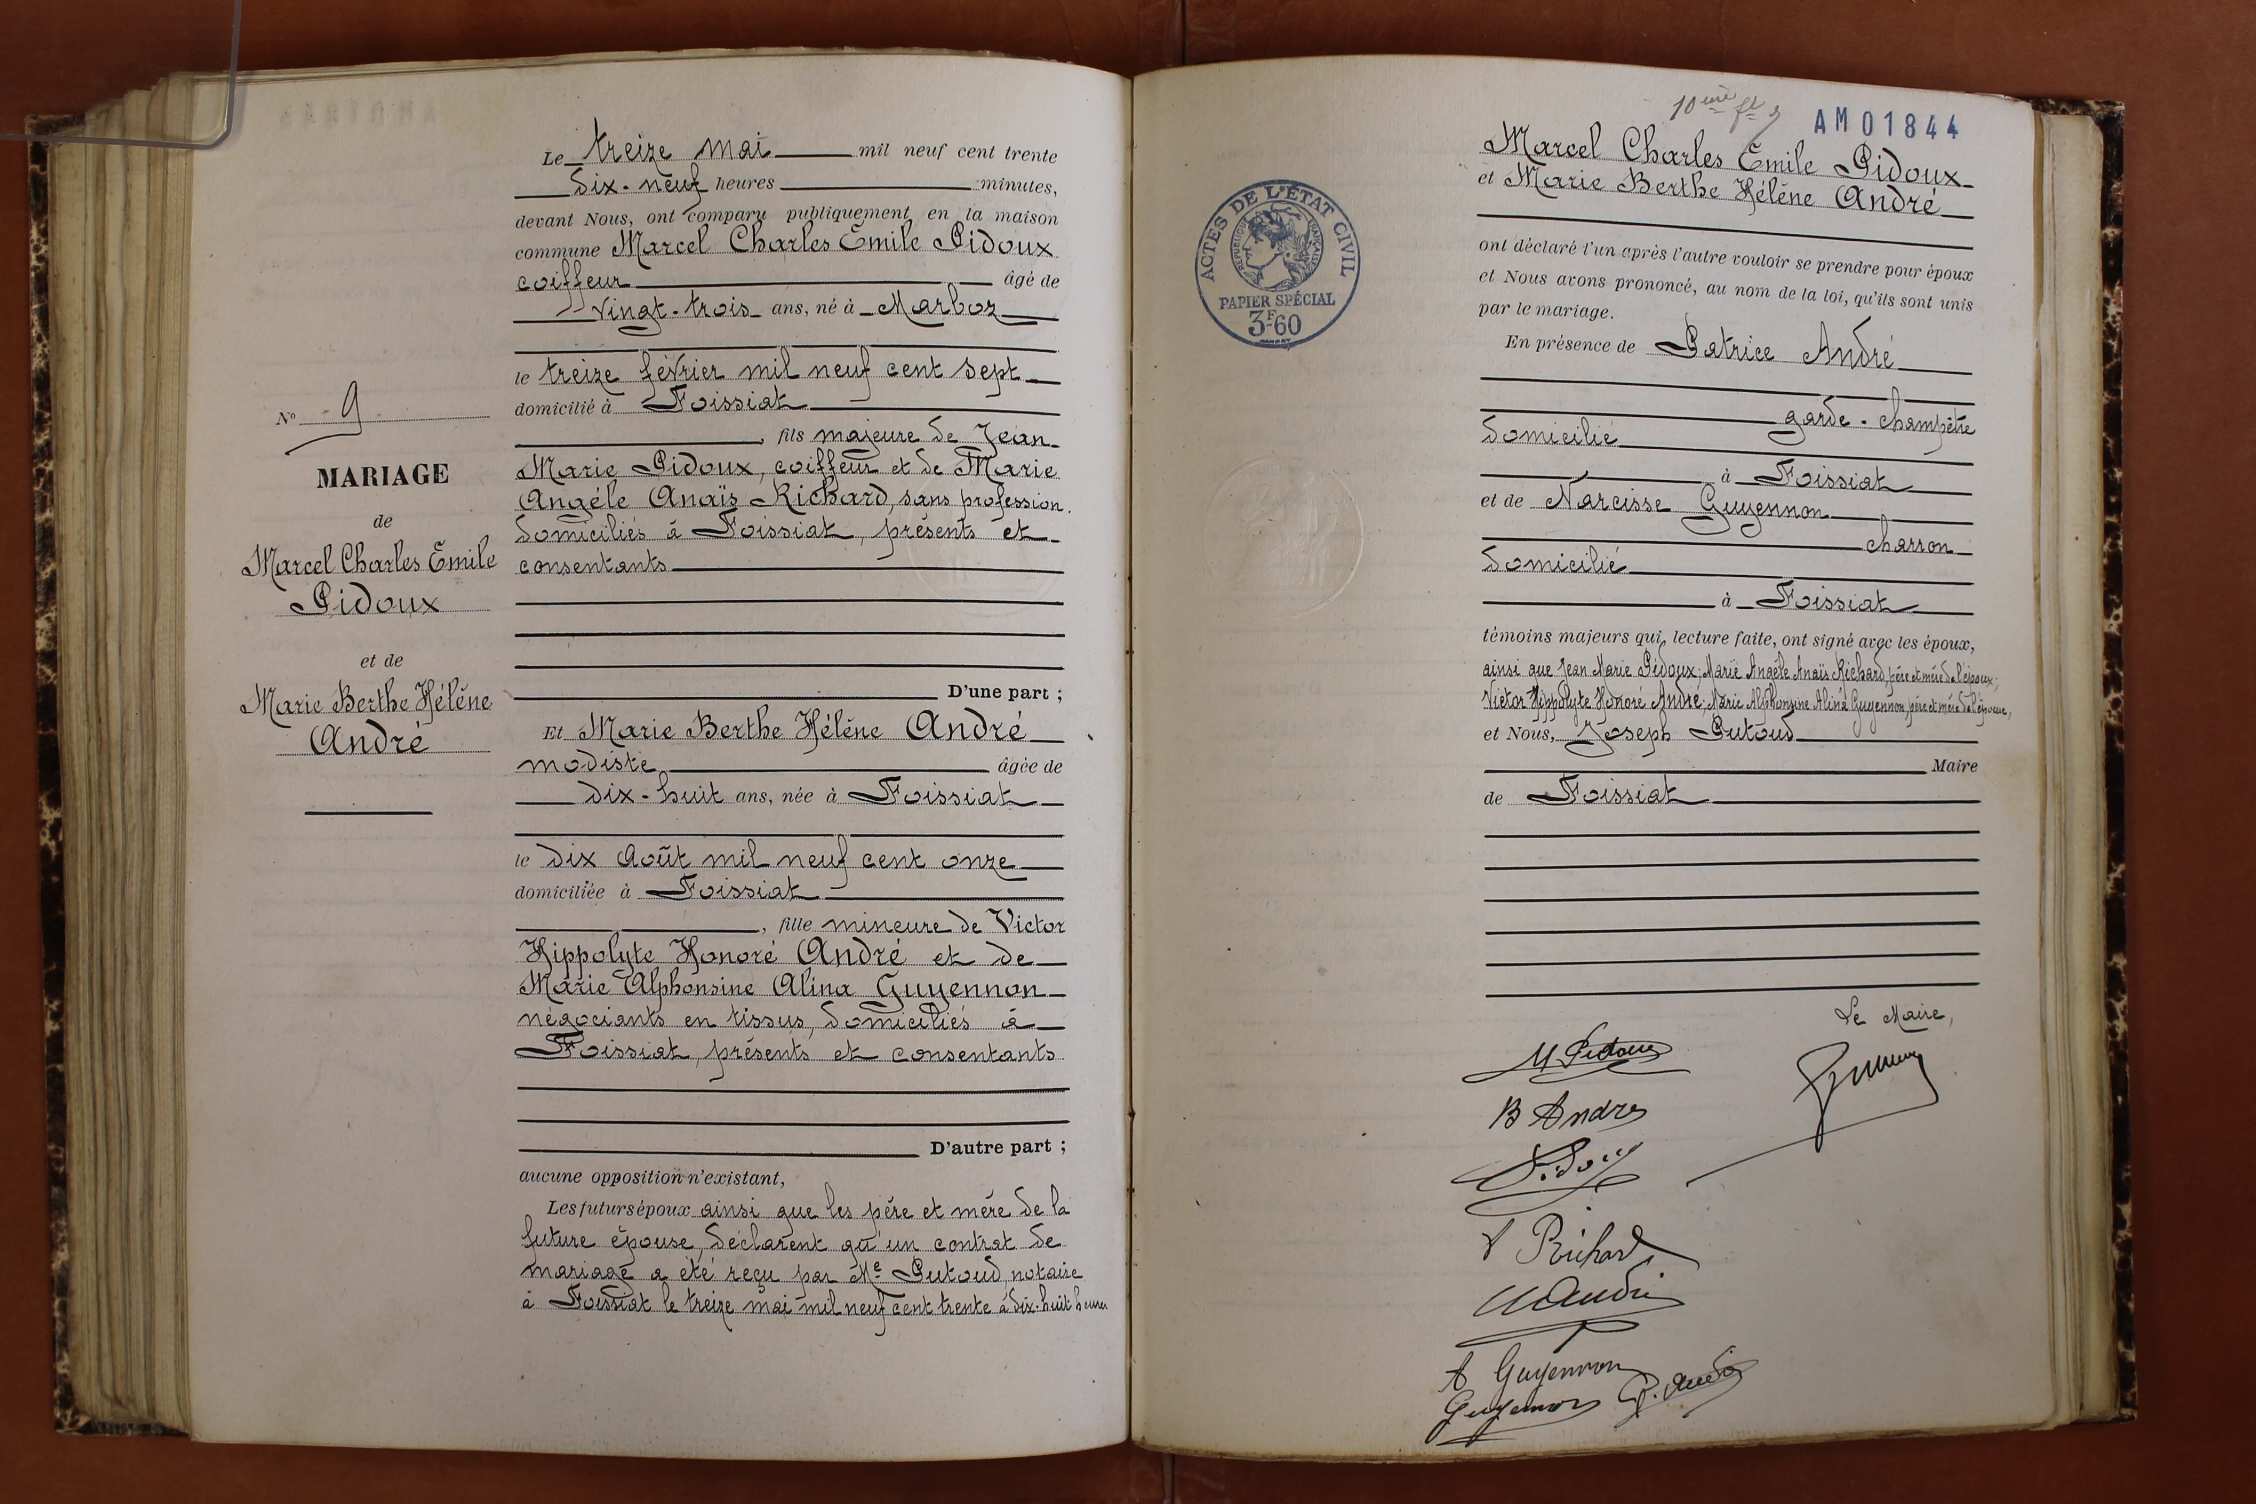 Le treize mai mil neuf cent trente
dix-neuf heures minutes,
devant Nous, ont comparu publiquement en la maison
commune Marcel Charles Emile Pidoux
coiffeur âgé de
vingt-trois ans, né à Marboz
le treize février mil neuf cent sept
domicilié à Foissiat
, fils majeure de Jean
Marie Pidoux, coiffeur et de Marie
Angèle Anaïs Richard, sans profession.
domiciliés à Foissiat, présents et
consentants
D'une part ;
Et Marie Berthe Hélène André
modiste âgée de
dix-huit ans, née à Foissiat
le dix Août mil neuf cent onze
domiciliée à Foissiat
, fille mineure de Victor
Hippolyte Honoré André et de
Marie Alphonsine Alina Guyennon
négociants en tissus, domiciliés à
Foissiat, présents et consentants
D'autre part ;
aucune opposition n'existant,
Les futurs époux ainsi que les père et mère de la
future épouse, déclarent qu'un contrat de
mariage a été reçu par Me Putoud, notaire
à Foissiat le treize mai mil neuf cent trente à dix-huit heures
No 9
MARIAGE
de
Marcel Charles Emile
Pidoux
et de
Marie Berthe Hélène
André
10ème
AM01844
Marcel Charles Emile Pidoux
et Marie Berthe Hélène André
ont déclaré l'un après l'autre vouloir se prendre pour époux
et Nous avons prononcé, au nom de la loi, qu'ils sont unis
par le mariage.
En présence de Patrice André
garde-champêtre
domicilié
à Foissiat
et de Narcisse Guyennon
charron
domicilié
à Foissiat
témoins majeurs qui, lecture faite, ont signé avec les époux,
ainsi que Jean Marie Pidoux; Marie Angèle Anaïs Richard, père et mère de l'époux;
Victor Hippolyte Honoré André; Marie Alphonsine Alina Guyennon, père et mère de l'épouse,
et Nous, Joseph Putoud
Maire
de Foissiat
ACTES DE L'ÉTAT CIVIL
RÉPUBLIQUE FRANÇAISE
PAPIER SPÉCIAL
3F60
Le Maire,
M Pidoux
B André
Pidoux
Richard
André
A Guyennon
Guyennon P. André